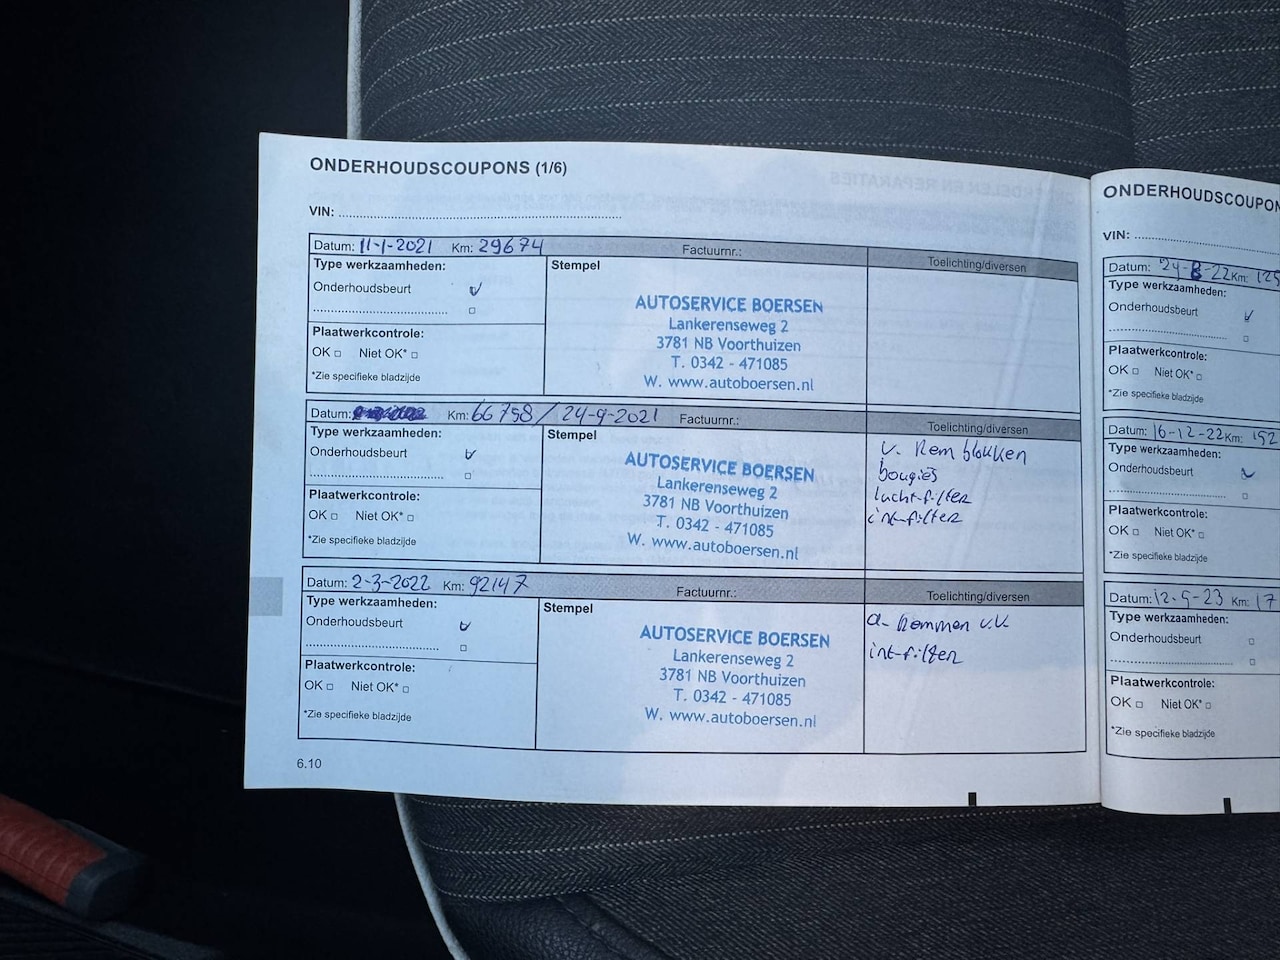 ONDERHOUDSCOUPONS (1/6)
VIN:
Datum: 11-1-2021 Km: 29674 Factuurnr.: Toelichting/diversen
Type werkzaamheden:
Onderhoudsbeurt
Plaatwerkcontrole:
OK Niet OK*
*Zie specifieke bladzijde
Stempel
AUTOSERVICE BOERSEN
Lankerenseweg 2
3781 NB Voorthuizen
T. 0342 - 471085
W. www.autoboersen.nl
Datum: Km: 66758 / 24-9-2021 Factuurnr.: Toelichting/diversen
Type werkzaamheden:
Onderhoudsbeurt
Plaatwerkcontrole:
OK Niet OK*
*Zie specifieke bladzijde
Stempel
AUTOSERVICE BOERSEN
Lankerenseweg 2
3781 NB Voorthuizen
T. 0342 - 471085
W. www.autoboersen.nl
v. Remblokken
bougies
luchtfilter
int-filter
Datum: 2-3-2022 Km: 92147 Factuurnr.: Toelichting/diversen
Type werkzaamheden:
Onderhoudsbeurt
Plaatwerkcontrole:
OK Niet OK*
*Zie specifieke bladzijde
Stempel
AUTOSERVICE BOERSEN
Lankerenseweg 2
3781 NB Voorthuizen
T. 0342 - 471085
W. www.autoboersen.nl
int-filter
6.10
ONDERHOUDSCOUPON
VIN:
Datum: 24-8-22 Km: 125
Type werkzaamheden:
Onderhoudsbeurt
Plaatwerkcontrole:
OK Niet OK*
*Zie specifieke bladzijde
Datum: 16-12-22 Km: 152
Type werkzaamheden:
Onderhoudsbeurt
Plaatwerkcontrole:
OK Niet OK*
*Zie specifieke bladzijde
Datum: 12-5-23 Km: 17
Type werkzaamheden:
Onderhoudsbeurt
Plaatwerkcontrole:
OK Niet OK*
*Zie specifieke bladzijde